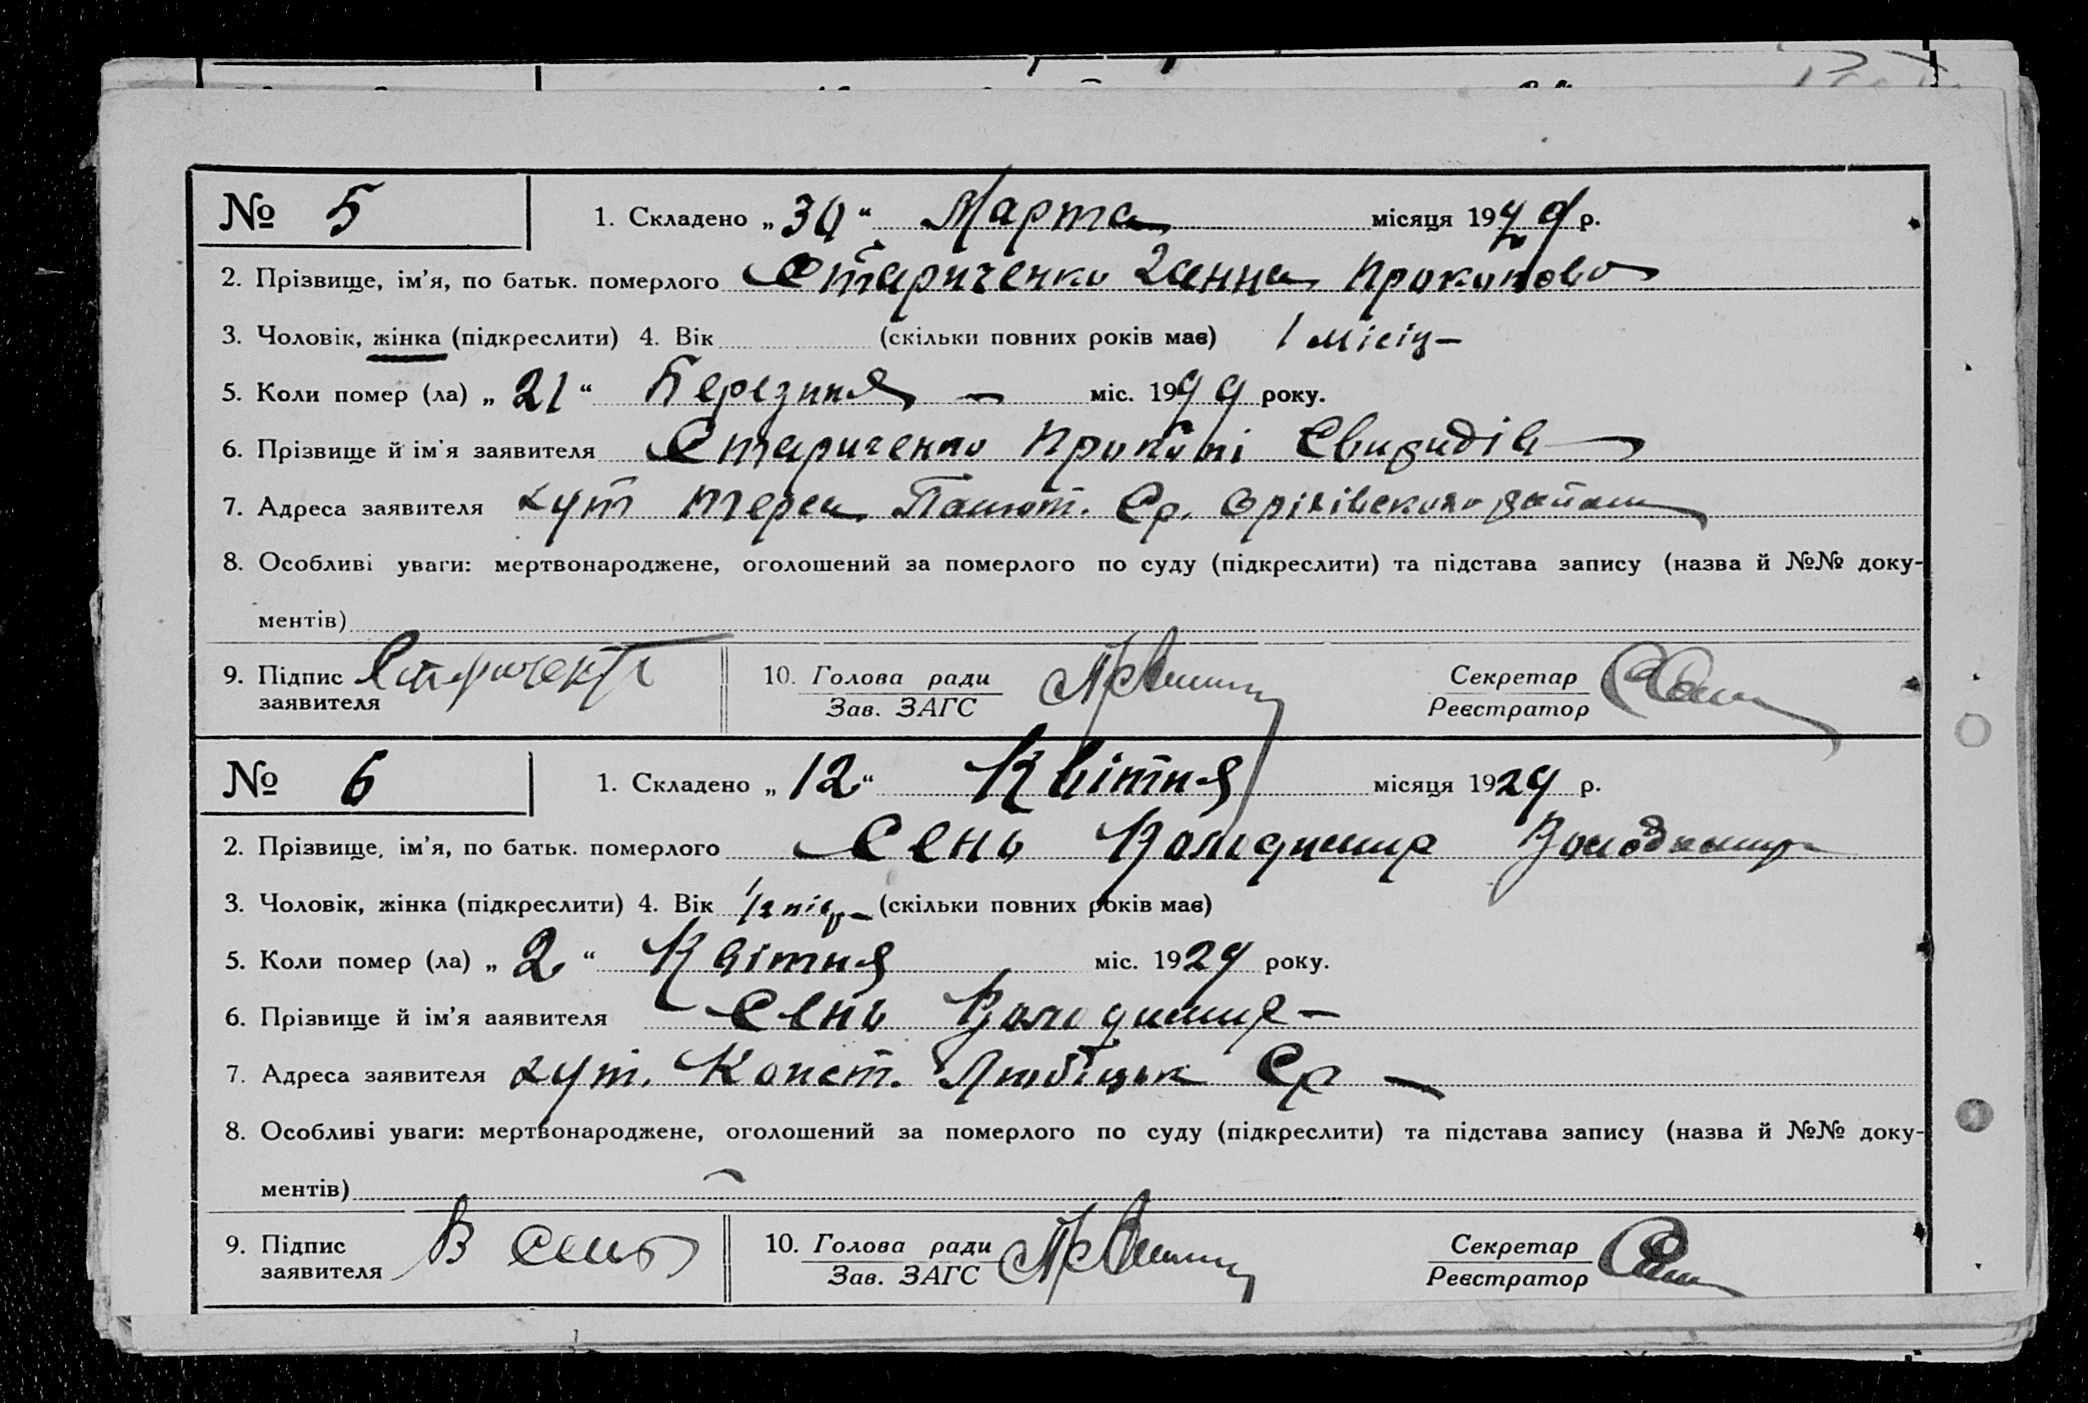 № 5 1. Складено „30“ Марта місяця 1929 р.
2. Прізвище, ім’я, по батьк. померлого Стариченко Ганна Прокопово
3. Чоловік, жінка (підкреслити) 4. Вік (скільки повних років має) 1 місіц
5. Коли помер (ла) „21“ Березння міс. 1929 року.
6. Прізвище й ім’я заявителя Стариченко
7. Адреса заявителя хут Терса Ср. Оріхівського району
8. Особливі уваги: мертвонароджене, оголошений за померлого по суду (підкреслити) та підстава запису (назва й №№ доку-
ментів)
9. Підпис заявителя Стариченко 10. Голова ради Зав. ЗАГС Секретар Реєстратор
№ 6 1. Складено „12“ Квітня місяця 1929 р.
2. Прізвище, ім’я, по батьк. померлого Сень Володимир Володимир
3. Чоловік, жінка (підкреслити) 4. Вік 1/2 (скільки повних років має)
5. Коли помер (ла) „2“ Квітня міс. 1929 року.
6. Прізвище й ім’я ааявителя Сень Володимир
7. Адреса заявителя хут. Конст. Любіцьк Ср
8. Особливі уваги: мертвонароджене, оголошений за померлого по суду (підкреслити) та підстава запису (назва й №№ доку-
ментів)
9. Підпис заявителя В Сень 10. Голова ради Зав. ЗАГС Секретар Реєстратор